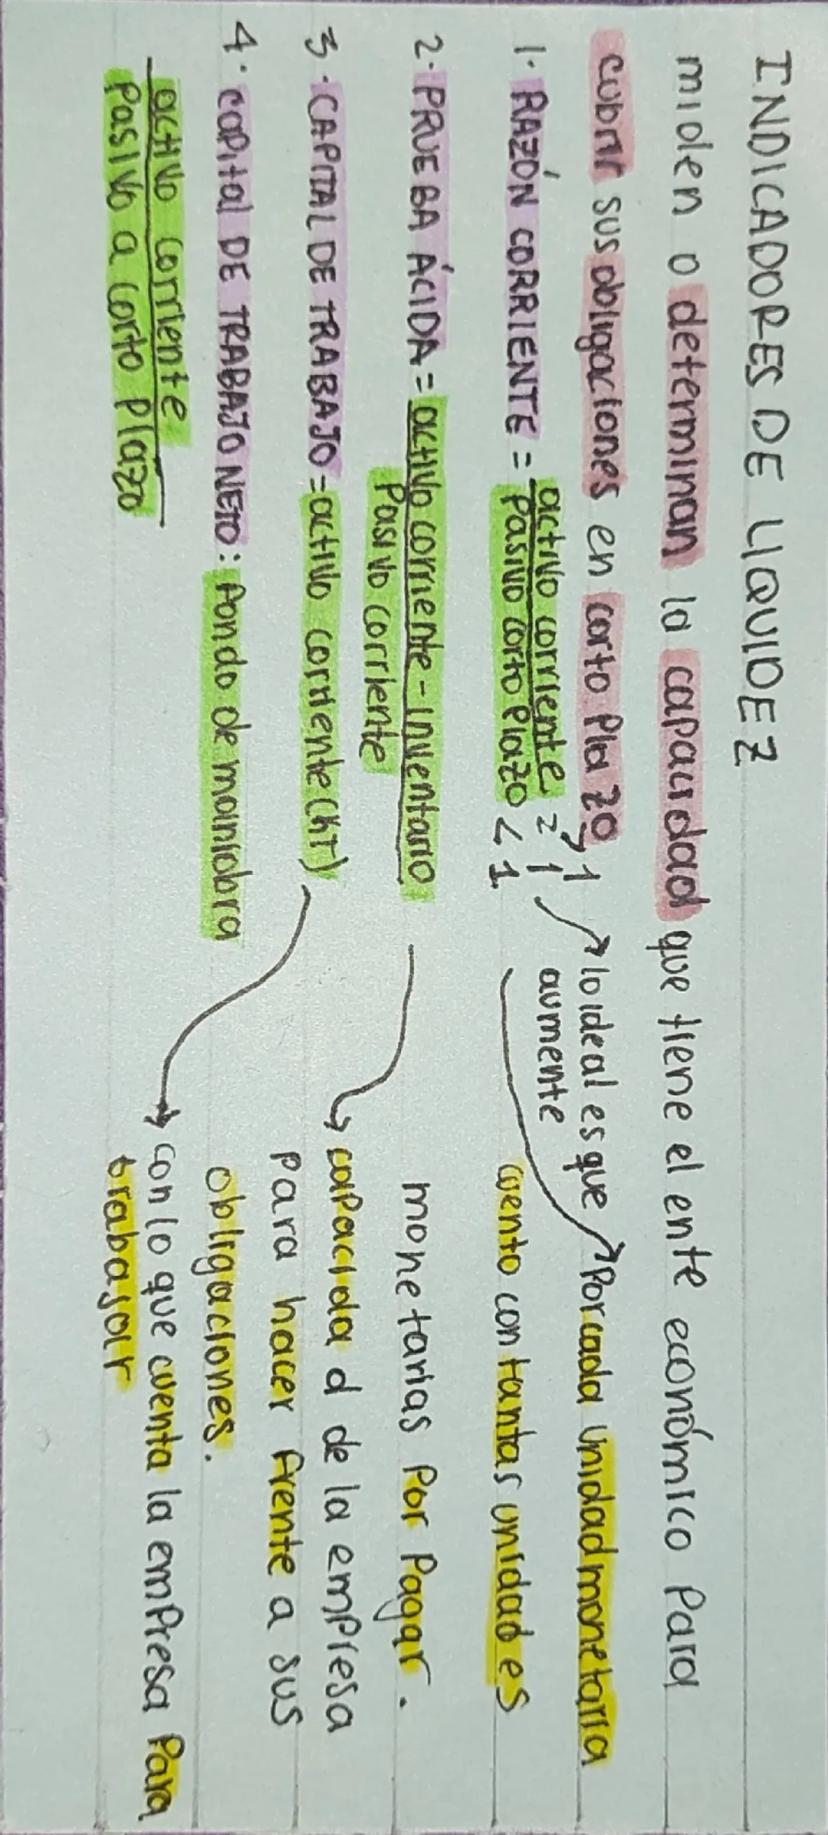 INDICADORES DE LIQUIDEZ
miden o determinan la capacidad que tiene el ente económico para
cubrir sus obligaciones en corto Plazo
1. RAZÓN CORRIENTE = activo corriente > 1
Pasivo corto Plazo < 1
lo ideal es que
aumente
Por cada unidad monetaria
cuento con tantas unidades
monetarias Por Pagar.
2. PRUEBA ÁCIDA = activo corriente - inventario
Pasivo corriente
capacidad de la empresa
para hacer frente a sus
obligaciones.
3. CAPITAL DE TRABAJO = activo corriente (KT)
con lo que cuenta la empresa Para
trabajar
4. CAPITAL DE TRABAJO NETO: fondo de maniobra
activo corriente
Pasivo a corto Plazo